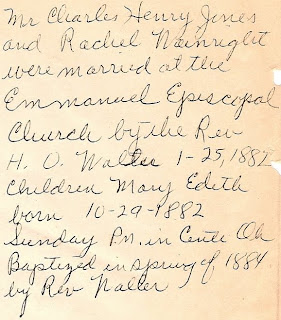 Mr Charles Henry Jones
and Rachel Wainright
were married at the
Emmanuel Episcopal
Church by the Rev
H. O. Walter 1-25, 1882
Children Mary Edith
born 10-29-1882
Sunday P.M. in Oh
Baptized in spring of 1884
by Rev Walter